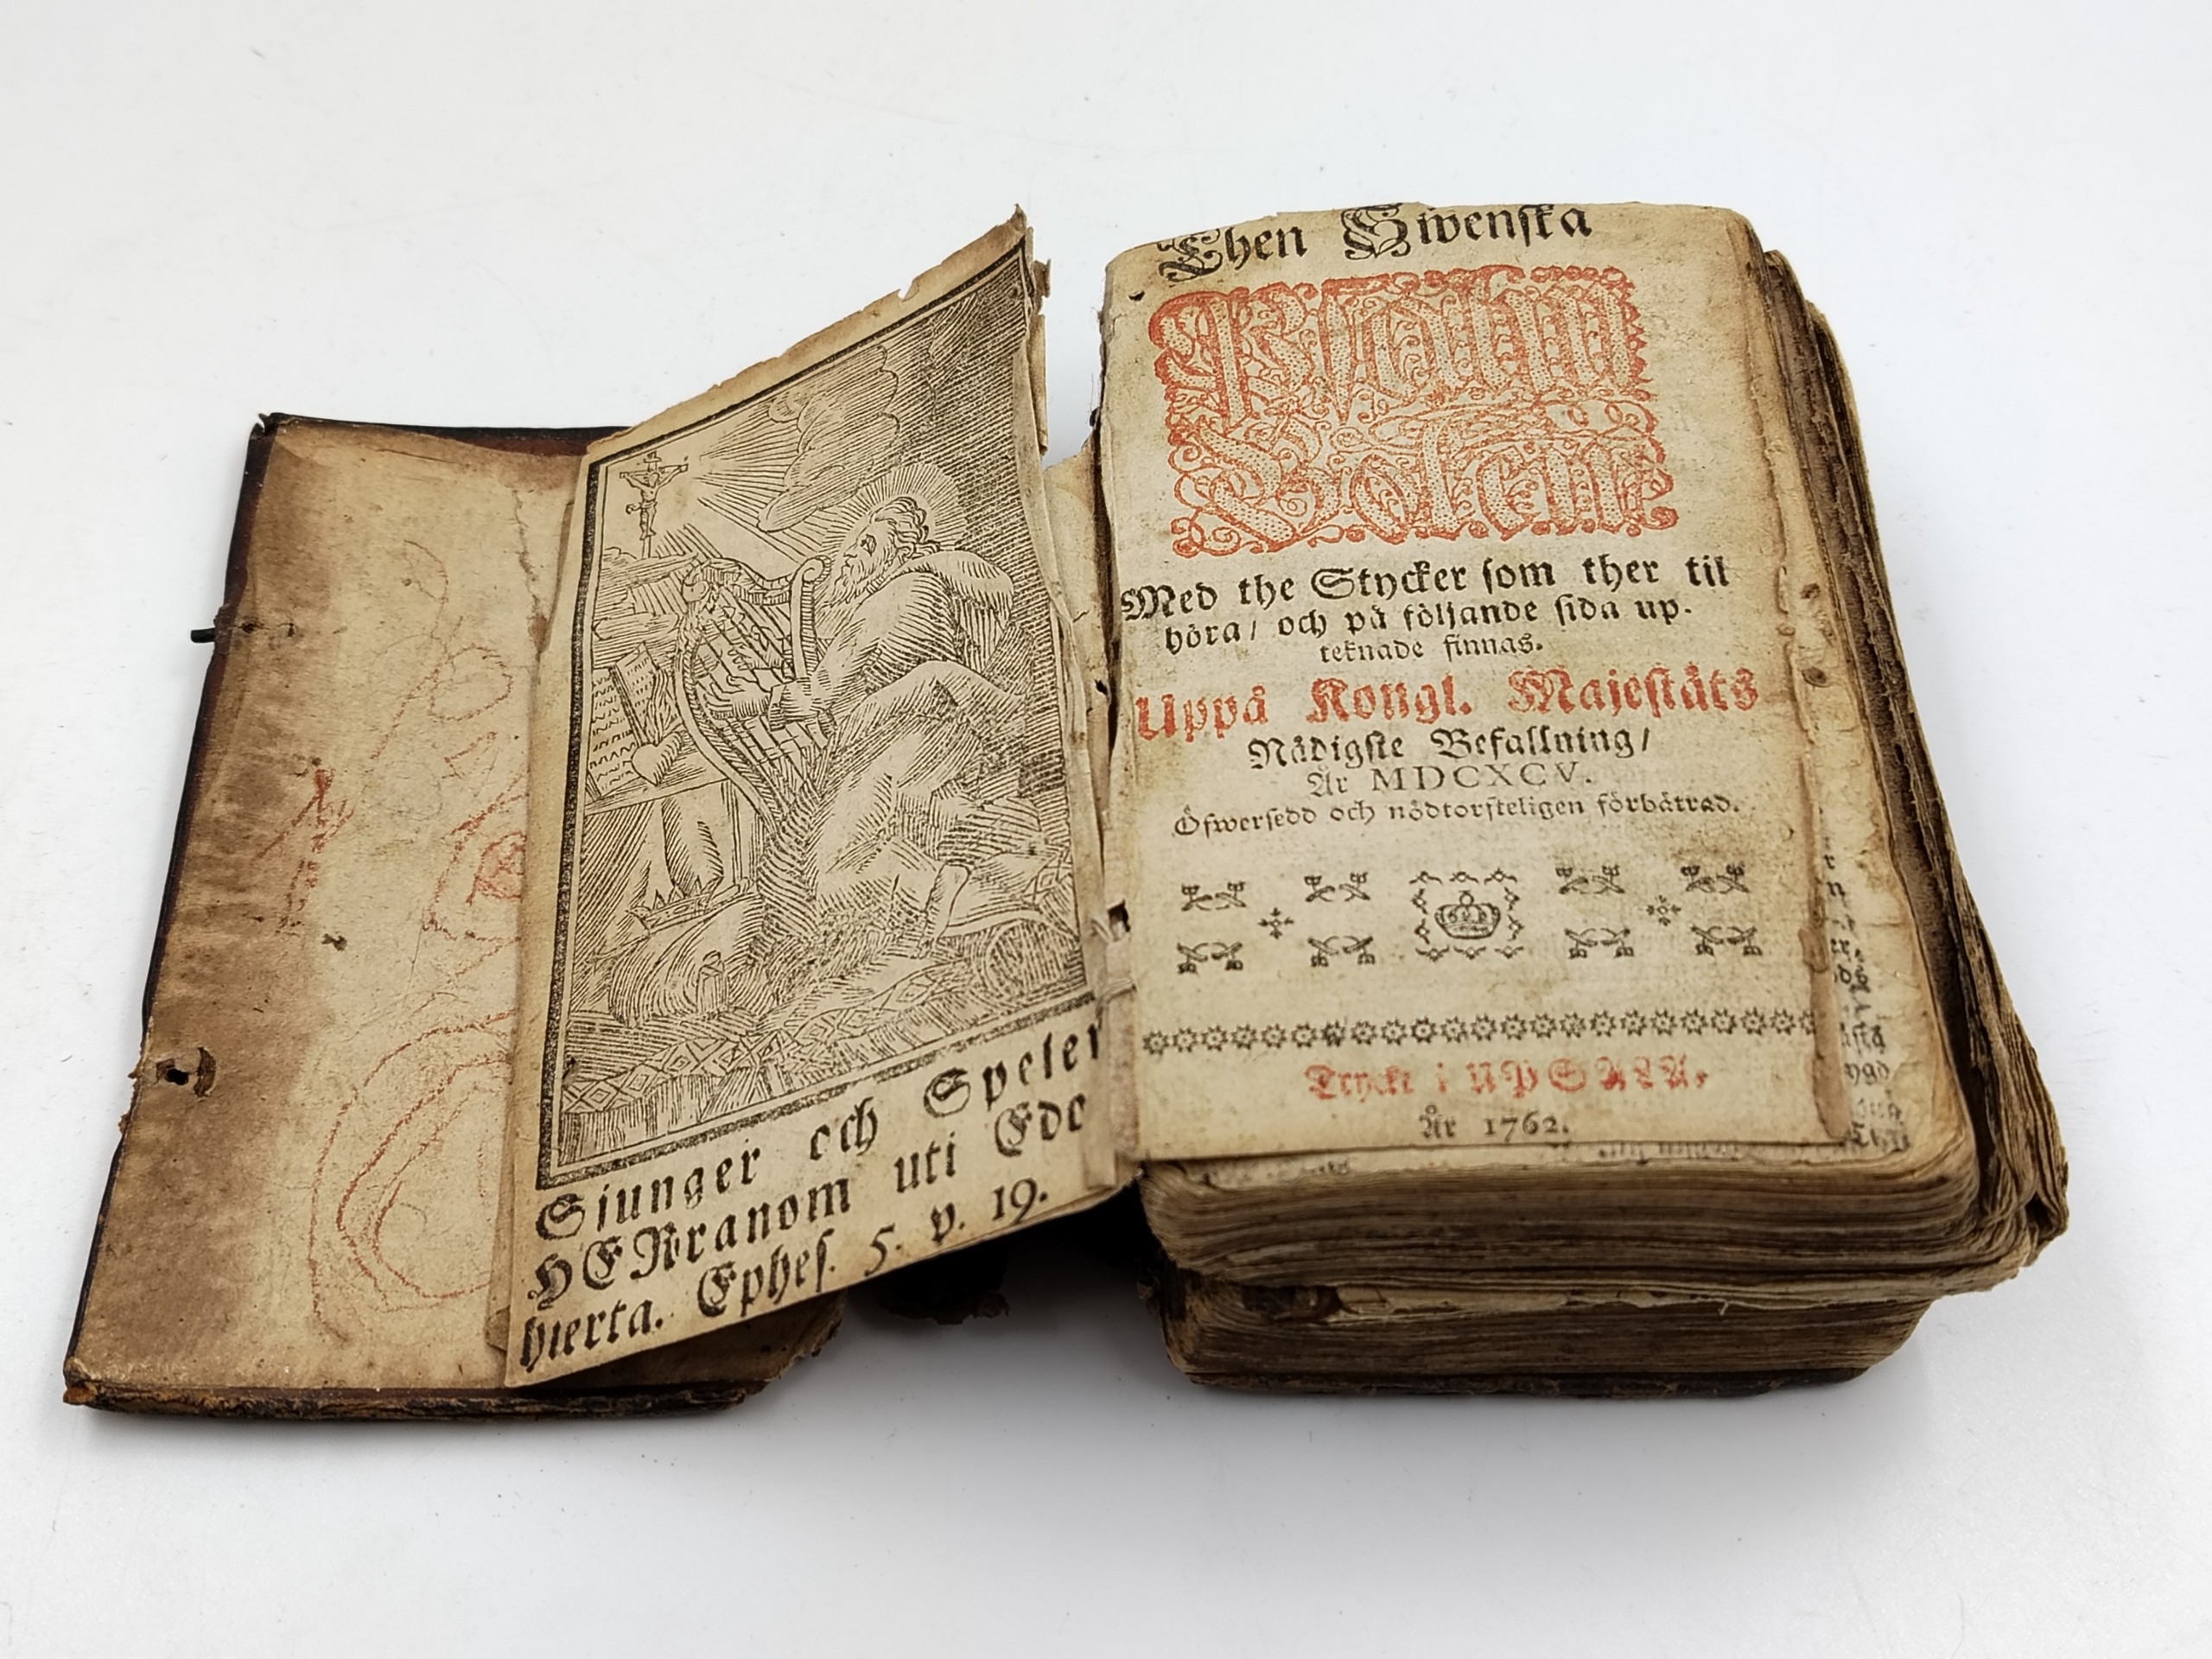 Sjunger och Speler
HERranom uti Edo
hierta. Ephes. 5. v. 19.
Then Swenska
Psalm
Boken
Med the Stycker som ther til
höra/ och på följande sida up-
teknade finnas.
Uppå Kongl. Majestäts
Nådigste Befallning/
År MDCXCV.
Öfwersedd och nödtorfteligen förbättrad.
Tryckt i UPSALA,
År 1762.